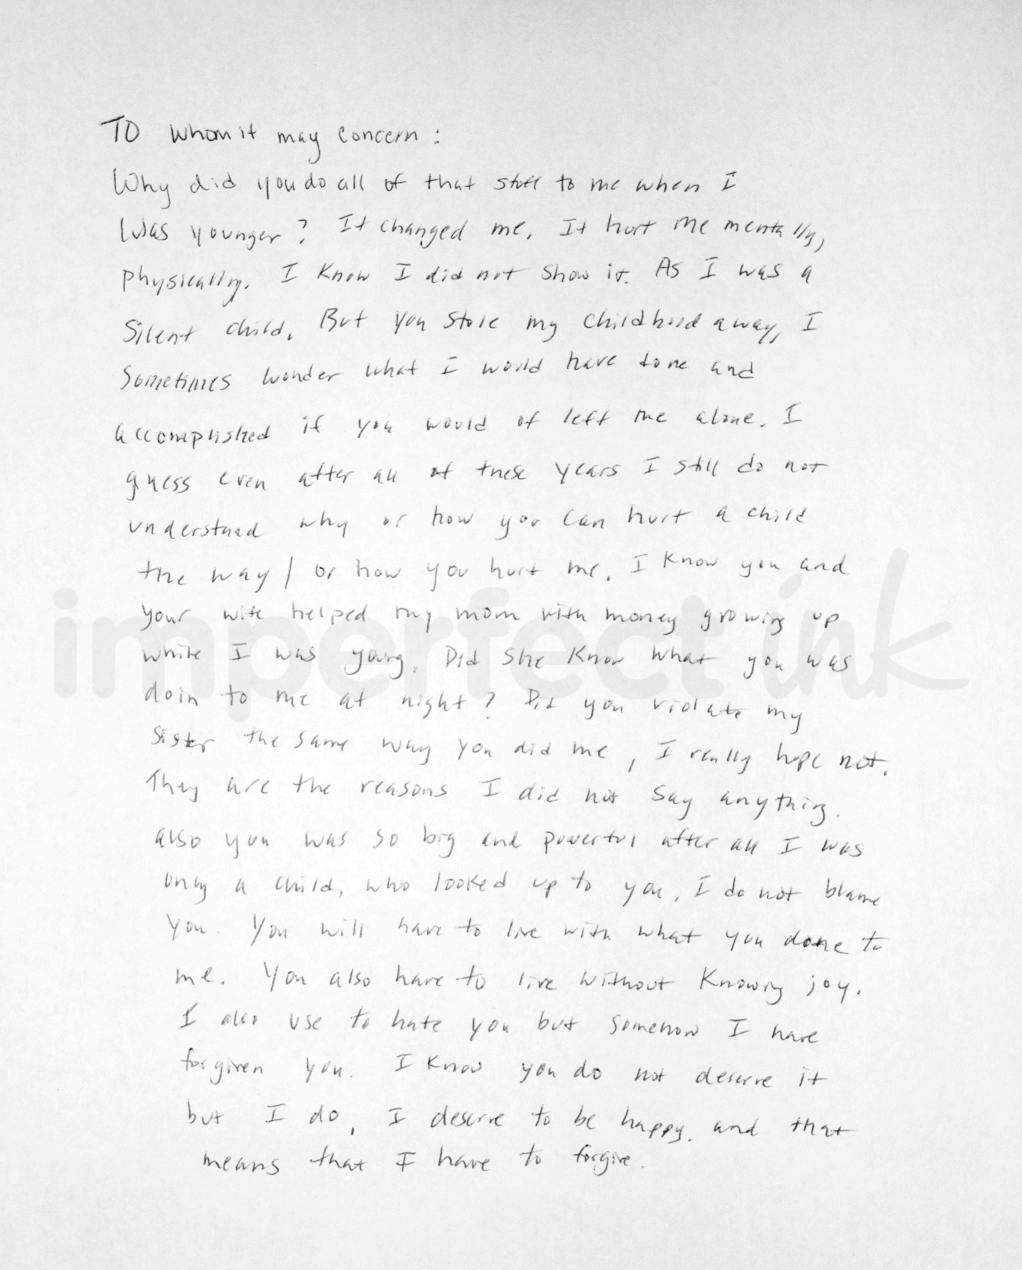 TO whom it may concern :
Why did you do all of that stuff to me when I
was younger ? It changed me. It hurt me mentally,
physically. I know I did not show it. As I was a
silent child. But you stole my childhood away, I
sometimes wonder what I would have done and
accomplished if you would of left me alone. I
guess even after all of these years I still do not
understand why or how you can hurt a child
the way / or how you hurt me. I know you and
your wife helped my mom with money growing up
while I was young. Did she know what you was
doin to me at night ? Did you violate my
sister the same way you did me, I really hope not.
They are the reasons I did not say anything.
also you was so big and powerful after all I was
only a child, who looked up to you. I do not blame
you. You will have to live with what you done to
me. You also have to live without knowing joy.
I also use to hate you but somehow I have
forgiven you. I know you do not deserve it
but I do, I deserve to be happy. and that
means that I have to forgive.
imperfect ink